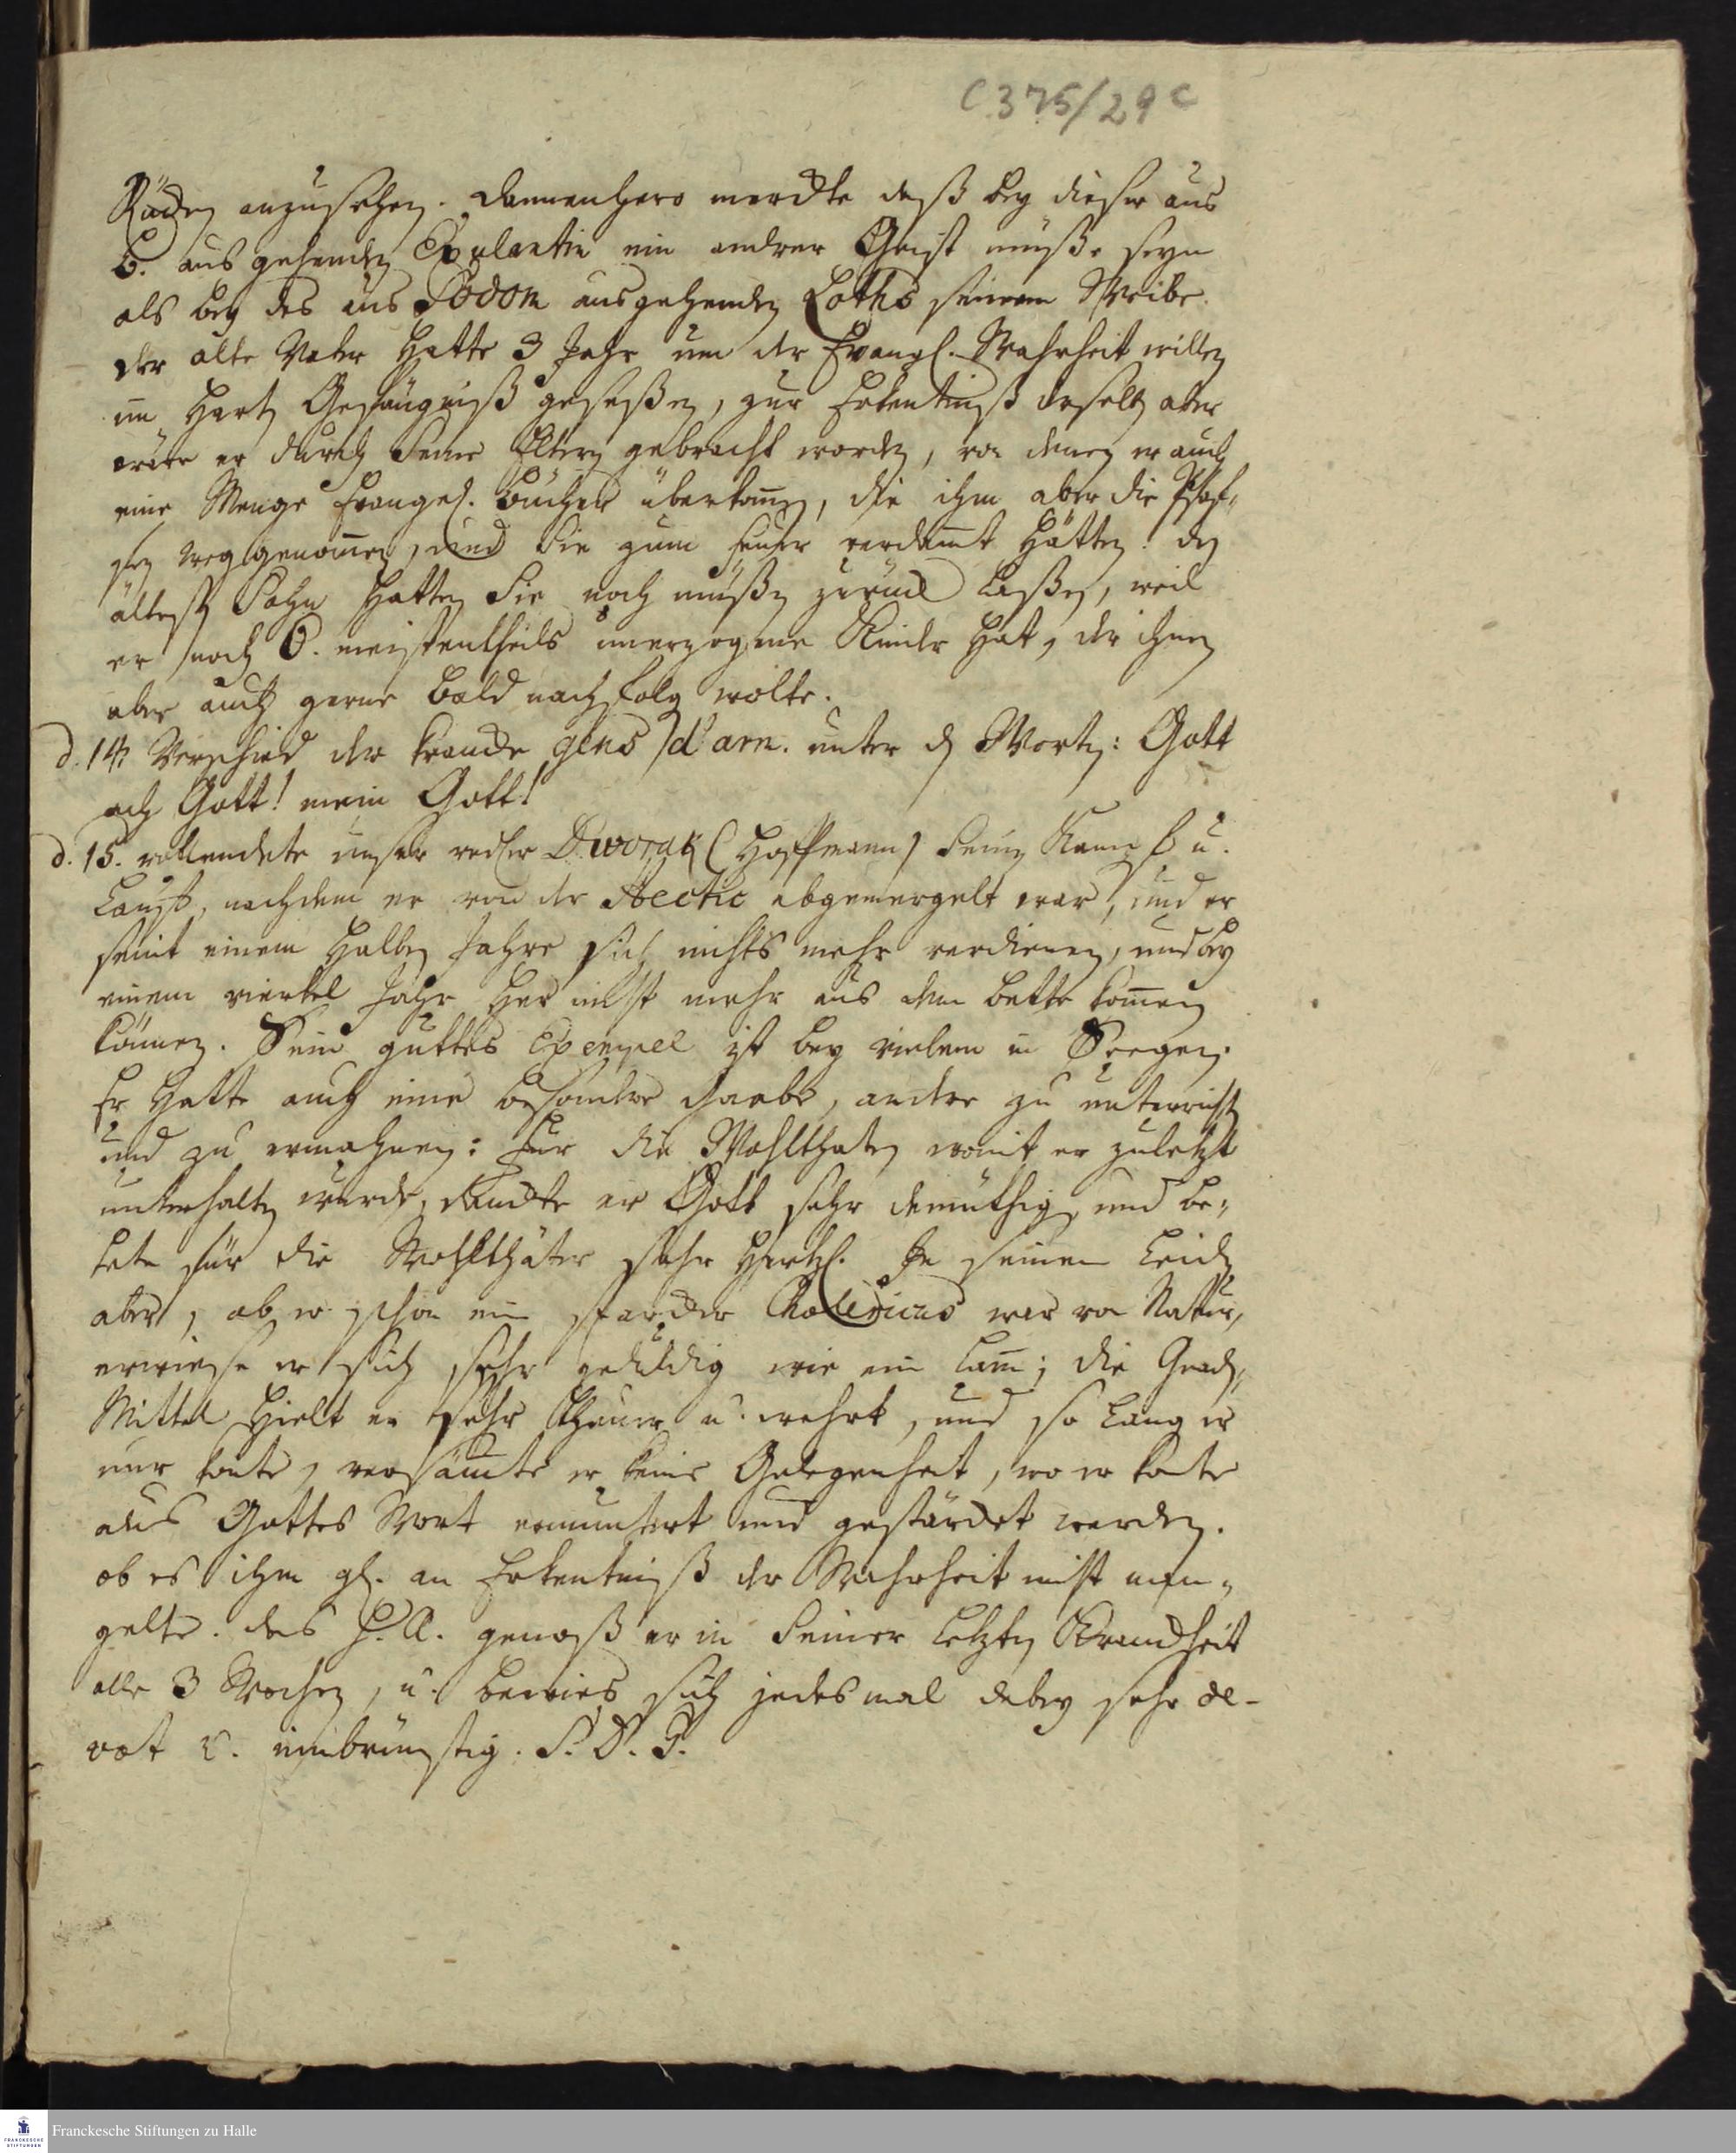 C 375/29 c
Rücken anzusehen. dannenhero merckte daß bey dieser aus
B. ausgehenden Exulantin ein andrer Geist müße seyn
als bey des aus Sodom ausgehenden Loths seinem Weibe.
der alte Vater hatte 3 Jahr um der Evangl. Wahrheit willen
im harten Gefängniß geseßen, zur Erkentniß derselben aber
wäre er durch seine Eltern gebracht worden, von denen er auch
eine Menge Evangel. Bücher überkom̄en, die ihm aber die Pfaf-
fen weggenom̄en, und sie zum feuer verdam̄t hätten. den
ältesten Sohn hatten sie noch müßen zurück laßen, weil
er noch 6. meistentheils unerzogene Kinder hat, der ihnen
aber auch gerne bald nachfolgen wolte.
d. 14 Verschied der krancke gens d'arm. unter den Worten: Gott
ach Gott! mein Gott!
d. 15. vollendete unser Dworak (Hoffmann) seinen Kampf u.
Lauff, nachdem er von der Hectic abgemergelt war, und er
seint einem halben Jahre sich nichts mehr verdienen, und bey
einem viertel Jahr her nicht mehr aus dem bette kom̄en
können. Sein guttes Exempel ist bey vielem in Seegen.
Er hatte auch eine besondere Gaabe, andre zu unterrichten
und zu ermahnen: für die Wohlthaten womit er zuletzt
unterhalten wurde, danckte er Gott sehr demüthig, und be-
tete für die Wohlthäter sehr hertzl. In seinen Leiden
aber, ob er schon ein starcker Cholericus war von Natur,
erwiese er sich sehr gedultig wie ein Lam̄; die Gnaden-
Mittel hielt er sehr theuer u. wehrt, und so lang er
nur konte, versäumte er keine Gelegenheit, wo er konte
aus Gottes Wort ermuntert und gestärcket werden.
ob es ihm gl. an Erkentniß der Wahrheit nicht man-
gelte. das H. A. genoß er in seiner letzten Kranckheit
alle 3 Wochen, u. bewies sich jedesmal dabey sehr de-
vot u. inbrünstig. S. D. G.
Franckesche Stiftungen zu Halle